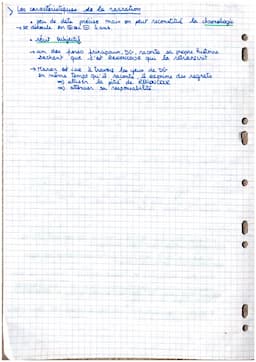 > Les caractéristiques de la narration
• peu de date précise mais on peut reconstituer la chronologie
→ se déroule en 4 ans
• récit subjectif
→ un des perso principaux, DG, raconte sa propre histoire
sachant que c'est qui la retranscrit
→ Manon est vue à travers les yeux de DG
en même temps qu'il raconte il exprime des regrets
⇒ attiser la pitié de
⇒ atténuer sa responsabilité